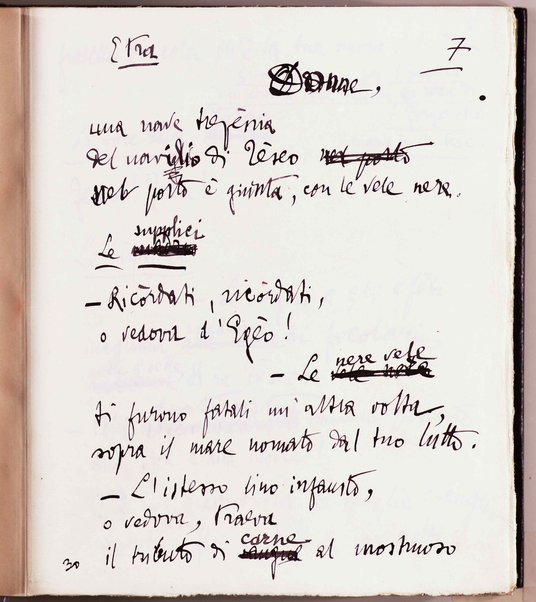 Etra
7
Donne,
una nave trezènia
del naviglio di Tèseo nel porto
nel porto è giunta, con le vele nere.
Le supplici
– Ricòrdati, ricòrdati,
o vedova d'Egèo!
– Le nere vele
vele nere
ti furono fatali un'altra volta,
sopra il mare nomato dal tuo lutto.
– L'istesso lino infausto,
o vedova, traeva
carne
30 il tributo di sangue al mostruoso